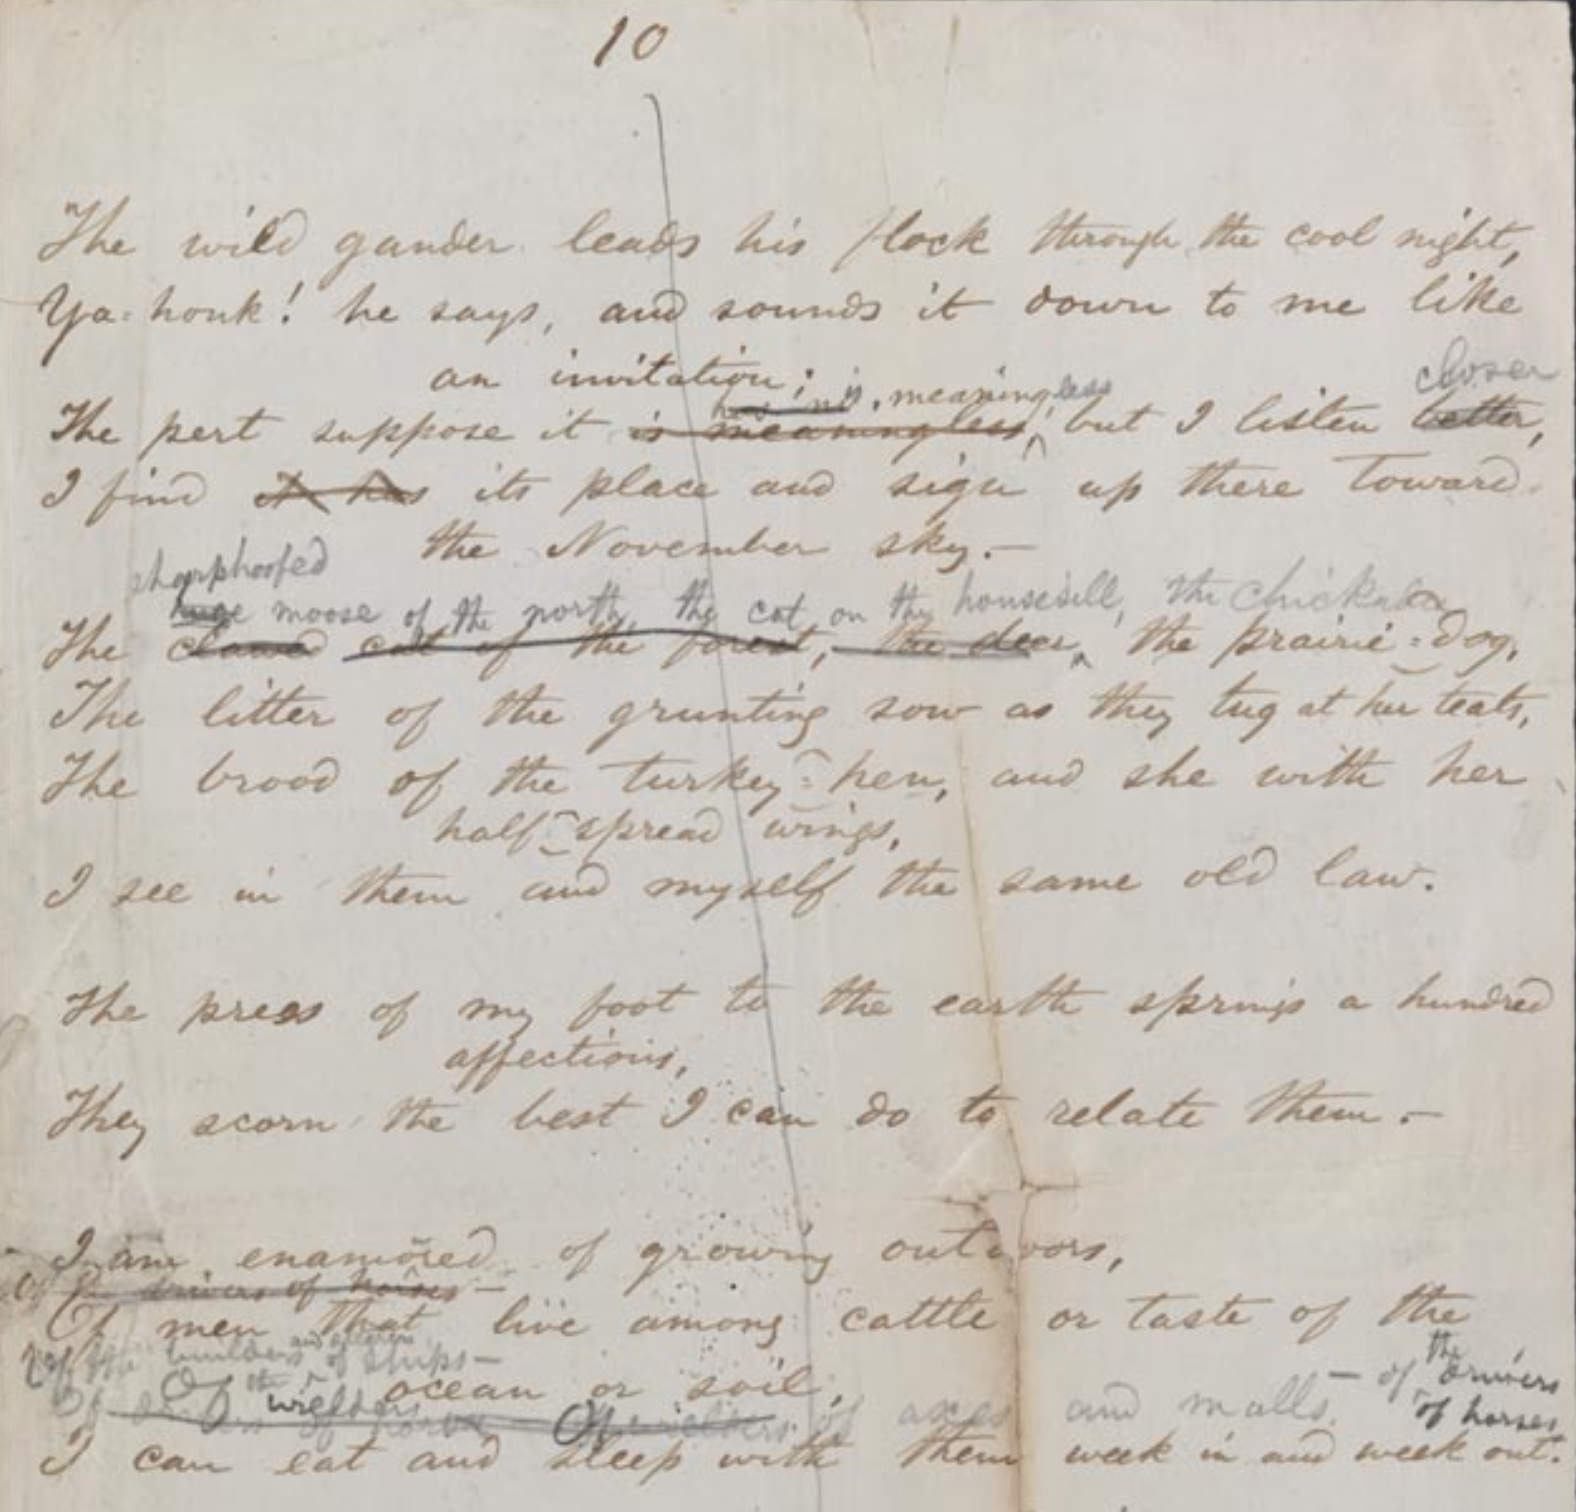 10
The wild gander leads his flock through the cool night,
Ya-honk! he says, and sounds it down to me like
an invitation;
closer
has no is, meaningless
The pert suppose it is meaningless, but I listen better,
I find it has its place and sign up there toward
the November sky.—
sharphoofed
huge moose of the north, the cat on the housesill, the chickadee
The clawed cat of the forest, the deer, the prairie-dog,
The litter of the grunting sow as they tug at her teats,
The brood of the turkey-hen, and she with her
half-spread wings,
I see in them and myself the same old law.
The press of my foot to the earth springs a hundred
affections,
They scorn the best I can do to relate them.—
I am enamored of growing outdoors,
drivers of horses—
Of men that live among cattle or taste of the
and steerers
Of the builders of ships— — of the drivers
ocean or soil,
Of the wielders Of wielders of axes and malls. of horses,
I can eat and sleep with them week in and week out.